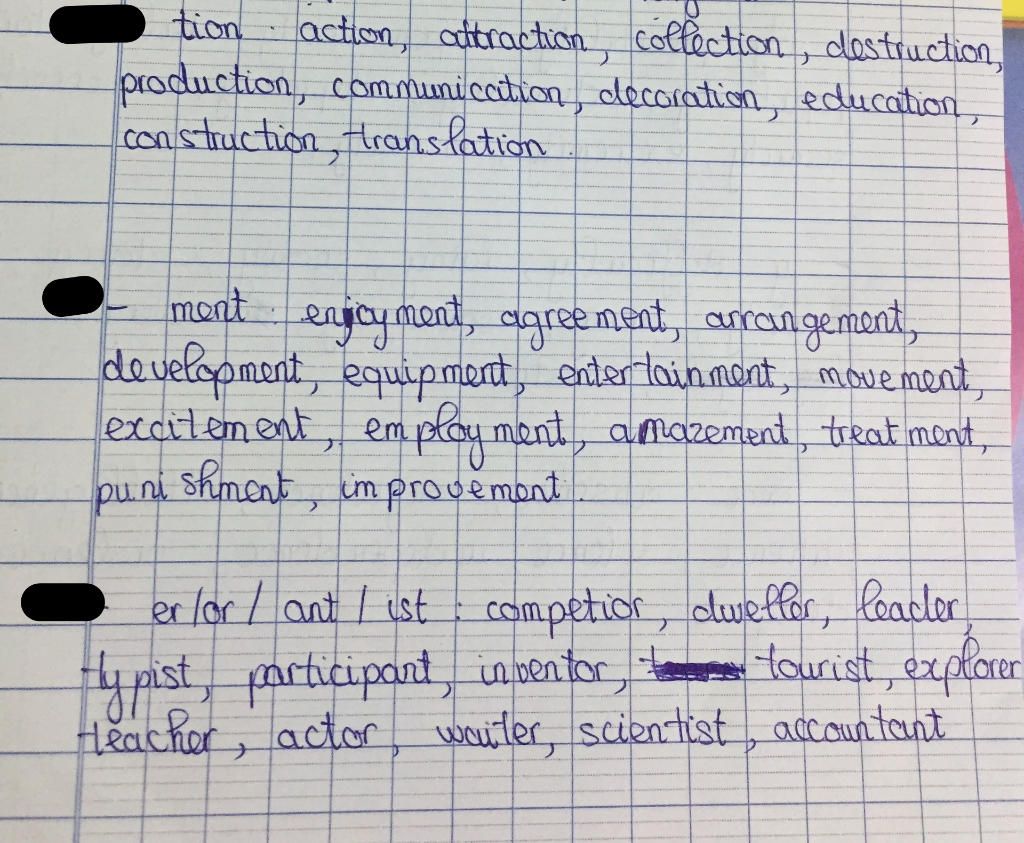 tion : action, attraction, collection, destruction,
production, communication, decoration, education,
construction, translation.
- ment : enjoyment, agreement, arrangement,
development, equipment, entertainment, movement,
excitement, employment, amazement, treatment,
punishment, improvement.
er/or/ ant / ist : competior, dweller, leader,
typist, participant, inventor, tourist, explorer
teacher, actor, waiter, scientist, accountant